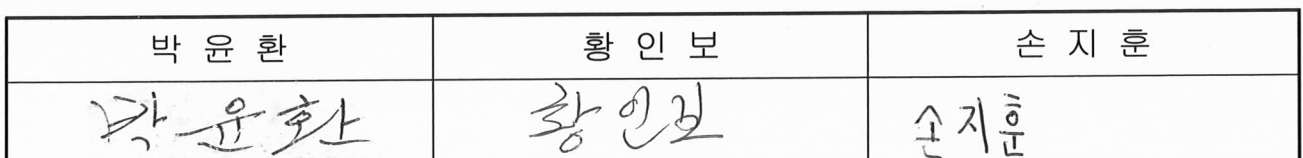 박 윤 환 황 인 보 손 지 훈
박윤환 황인보 손지훈